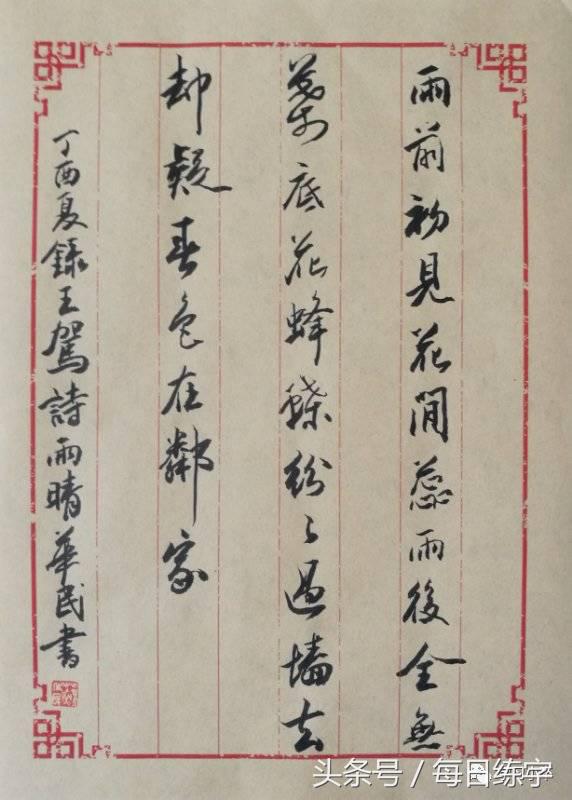 雨前初見花間蕊雨後全無
葉底花蜂蝶紛〻過墻去
却疑春色在鄰家
丁酉夏録王駕詩雨晴華民書
头条号/每日练字